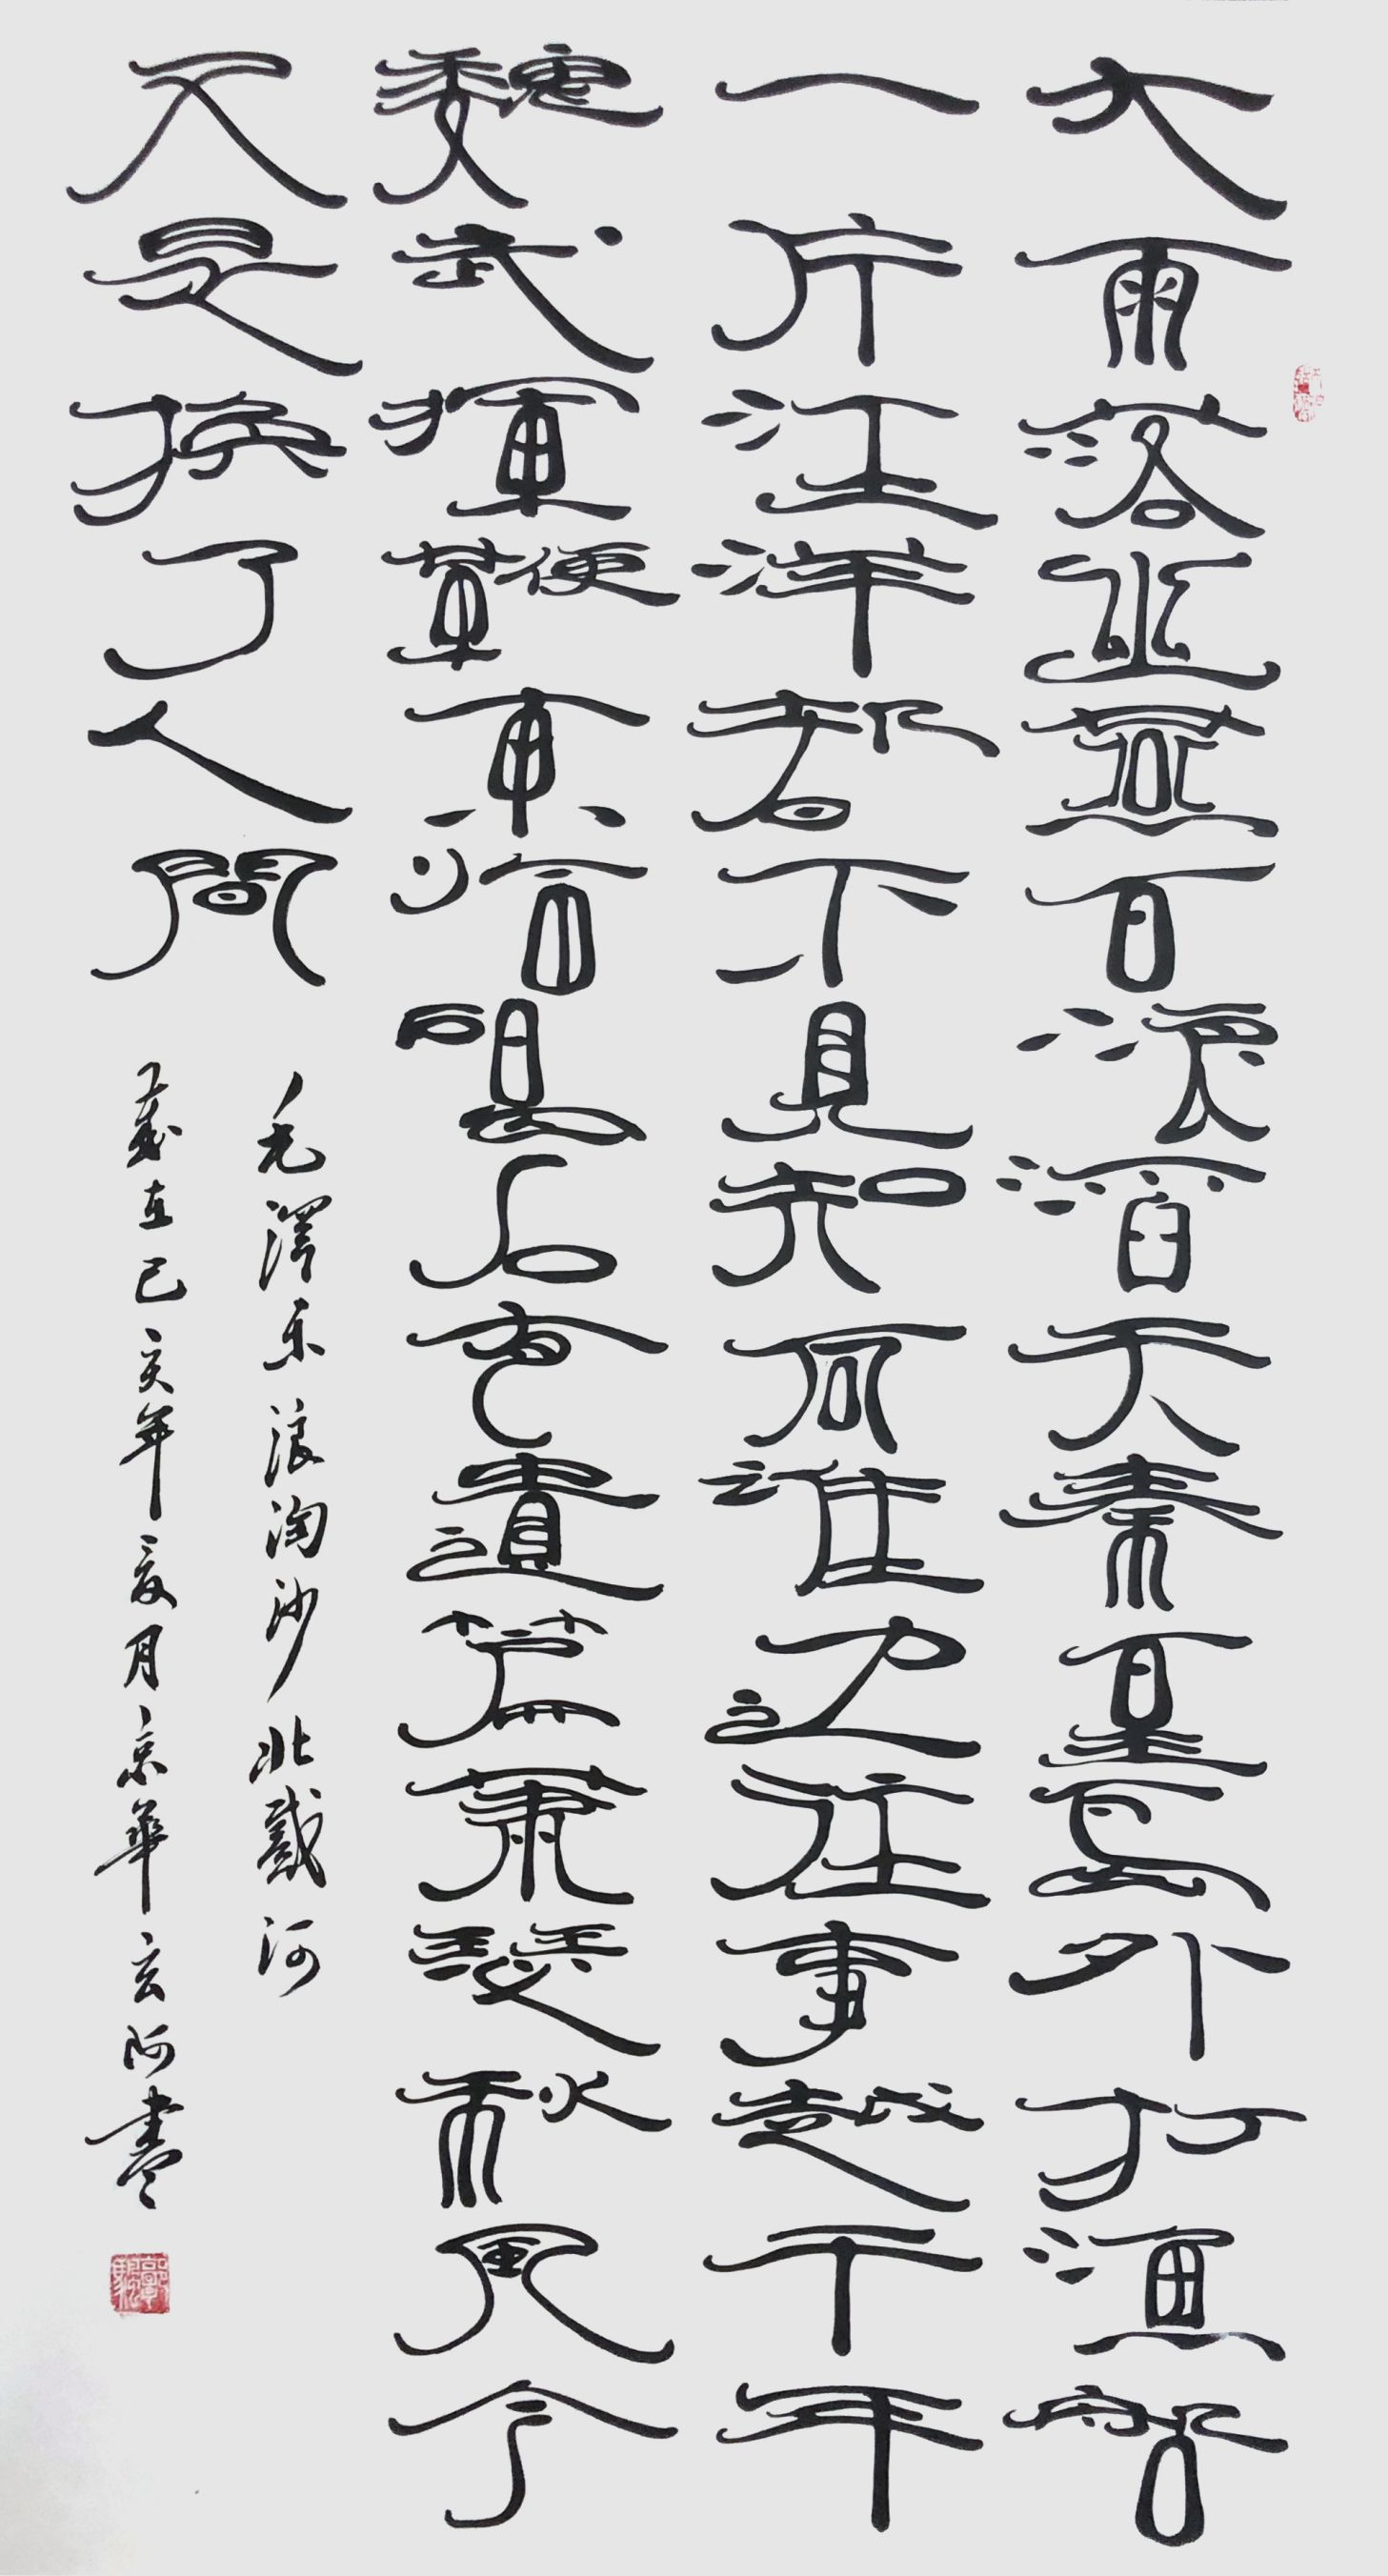 大雨落幽燕白浪滔天秦皇島外打漁船
一片汪洋都不見知向誰邊往事越千年
魏武揮鞭東臨碣石有遺篇蕭瑟秋風今
又是換了人間
毛澤東浪淘沙北戴河
歲在己亥年夏月京華玄阿書